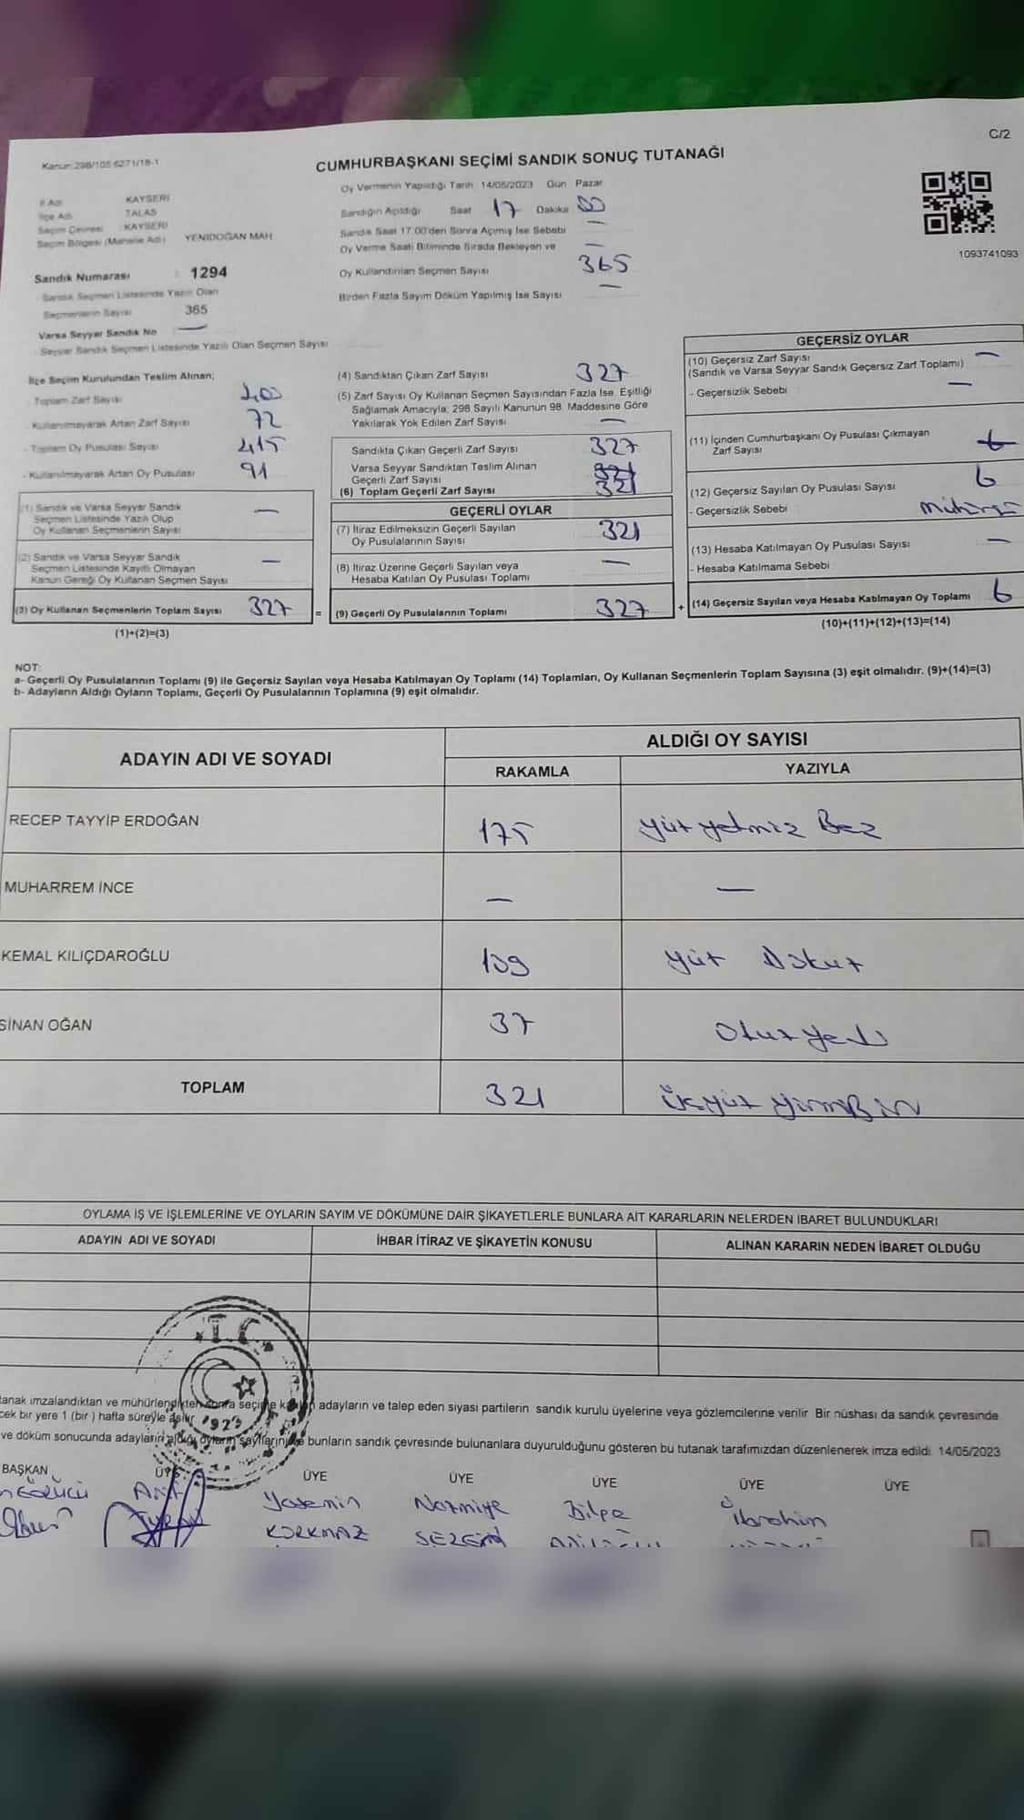 C/2
Kanun:298/105 6271/18-1
CUMHURBAŞKANI SEÇİMİ SANDIK SONUÇ TUTANAĞI
İl Adı KAYSERİ
İlçe Adı TALAS
Seçim Çevresi KAYSERİ
Seçim Bölgesi (Mahalle Adı) YENİDOĞAN MAH
Sandık Numarası : 1294
Sandık Seçmen Listesinde Yazılı Olan
Seçmenlerin Sayısı 365
Varsa Seyyar Sandık No —
Seyyar Sandık Seçmen Listesinde Yazılı Olan Seçmen Sayısı
Oy Vermenin Yapıldığı Tarih 14/05/2023 Gün Pazar
Sandığın Açıldığı Saat 17 Dakika 00
Sandık Saat 17:00'den Sonra Açımış İse Sebebi —
Oy Verme Saati Bitiminde Sırada Bekleyen ve —
Oy Kullandırılan Seçmen Sayısı 365
Birden Fazla Sayım Döküm Yapılmış İse Sayısı —
1093741093
İlçe Seçim Kurulundan Teslim Alınan;
- Toplam Zarf Sayısı 400
- Kullanılmayarak Artan Zarf Sayısı 72
- Toplam Oy Pusulası Sayısı 415
- Kullanılmayarak Artan Oy Pusulası 91
(1) Sandık ve Varsa Seyyar Sandık
Seçmen Listesinde Yazılı Olup
Oy Kullanan Seçmenlerin Sayısı —
(2) Sandık ve Varsa Seyyar Sandık
Seçmen Listesinde Kayıtlı Olmayan
Kanun Gereği Oy Kullanan Seçmen Sayısı —
(3) Oy Kullanan Seçmenlerin Toplam Sayısı 327 =
(1)+(2)=(3)
(4) Sandıktan Çıkan Zarf Sayısı 327
(5) Zarf Sayısı Oy Kullanan Seçmen Sayısından Fazla İse, Eşitliği
Sağlamak Amacıyla; 298 Sayılı Kanunun 98. Maddesine Göre
Yakılarak Yok Edilen Zarf Sayısı —
Sandıkta Çıkan Geçerli Zarf Sayısı 327
Varsa Seyyar Sandıktan Teslim Alınan
Geçerli Zarf Sayısı
(6) Toplam Geçerli Zarf Sayısı 321
GEÇERLİ OYLAR
(7) İtiraz Edilmeksizin Geçerli Sayılan
Oy Pusulalarının Sayısı 321
(8) İtiraz Üzerine Geçerli Sayılan veya
Hesaba Katılan Oy Pusulası Toplamı —
(9) Geçerli Oy Pusulalarının Toplamı 327 +
GEÇERSİZ OYLAR
(10) Geçersiz Zarf Sayısı
(Sandık ve Varsa Seyyar Sandık Geçersiz Zarf Toplamı) —
- Geçersizlik Sebebi —
(11) İçinden Cumhurbaşkanı Oy Pusulası Çıkmayan
Zarf Sayısı
(12) Geçersiz Sayılan Oy Pusulası Sayısı 6
- Geçersizlik Sebebi
(13) Hesaba Katılmayan Oy Pusulası Sayısı —
- Hesaba Katılmama Sebebi
(14) Geçersiz Sayılan veya Hesaba Katılmayan Oy Toplamı 6
(10)+(11)+(12)+(13)=(14)
NOT:
a- Geçerli Oy Pusulalarının Toplamı (9) ile Geçersiz Sayılan veya Hesaba Katılmayan Oy Toplamı (14) Toplamları, Oy Kullanan Seçmenlerin Toplam Sayısına (3) eşit olmalıdır. (9)+(14)=(3)
b- Adayların Aldığı Oyların Toplamı, Geçerli Oy Pusulalarının Toplamına (9) eşit olmalıdır.
ADAYIN ADI VE SOYADI ALDIĞI OY SAYISI
RAKAMLA YAZIYLA
RECEP TAYYİP ERDOĞAN 175 yüz yetmiz Beş
MUHARREM İNCE — —
KEMAL KILIÇDAROĞLU 109 yüz Dokuz
SİNAN OĞAN 37 Otuz yedi
TOPLAM 321 Üçyüz yirmiBir
OYLAMA İŞ VE İŞLEMLERİNE VE OYLARIN SAYIM VE DÖKÜMÜNE DAİR ŞİKAYETLERLE BUNLARA AİT KARARLARIN NELERDEN İBARET BULUNDUKLARI
ADAYIN ADI VE SOYADI İHBAR İTİRAZ VE ŞİKAYETİN KONUSU ALINAN KARARIN NEDEN İBARET OLDUĞU
T.C.
1923
tanak imzalandıktan ve mühürlendikten sonra seçime katılan adayların ve talep eden siyasi partilerin sandık kurulu üyelerine veya gözlemcilerine verilir Bir nüshası da sandık çevresinde
cek bir yere 1 (bir ) hafta süreyle asılır.
ve döküm sonucunda adayların aldığı oyların sayılarını ve bunların sandık çevresinde bulunanlara duyurulduğunu gösteren bu tutanak tarafımızdan düzenlenerek imza edildi. 14/05/2023
BAŞKAN ÜYE ÜYE ÜYE ÜYE ÜYE ÜYE
Yasemin Nazmiye Bilge İbrahim
KORKMAZ SEZGİN